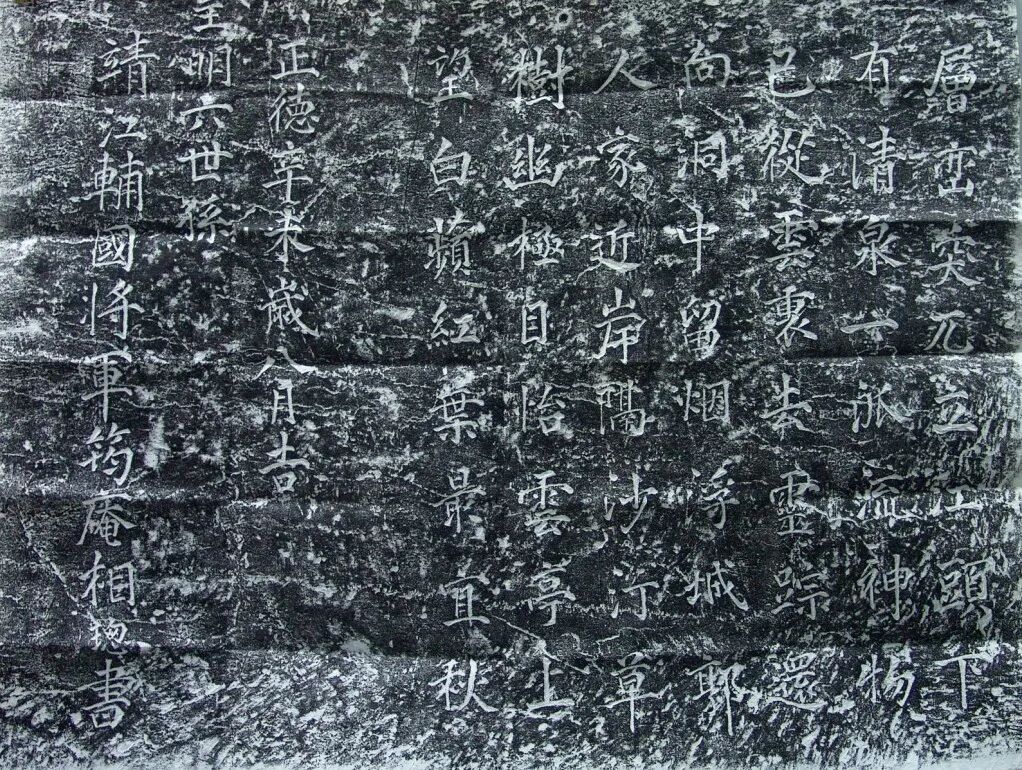 層巒突兀立江頭下
有清泉一派流神物
已從雲裏去靈踪還
向洞中留烟浮城郭
人家近岸隔沙汀草
樹幽極目怡雲亭上
望白蘋紅葉最宜秋
正德辛未歲八月吉
皇明六世孫
靖江輔國將軍筠庵相摠書